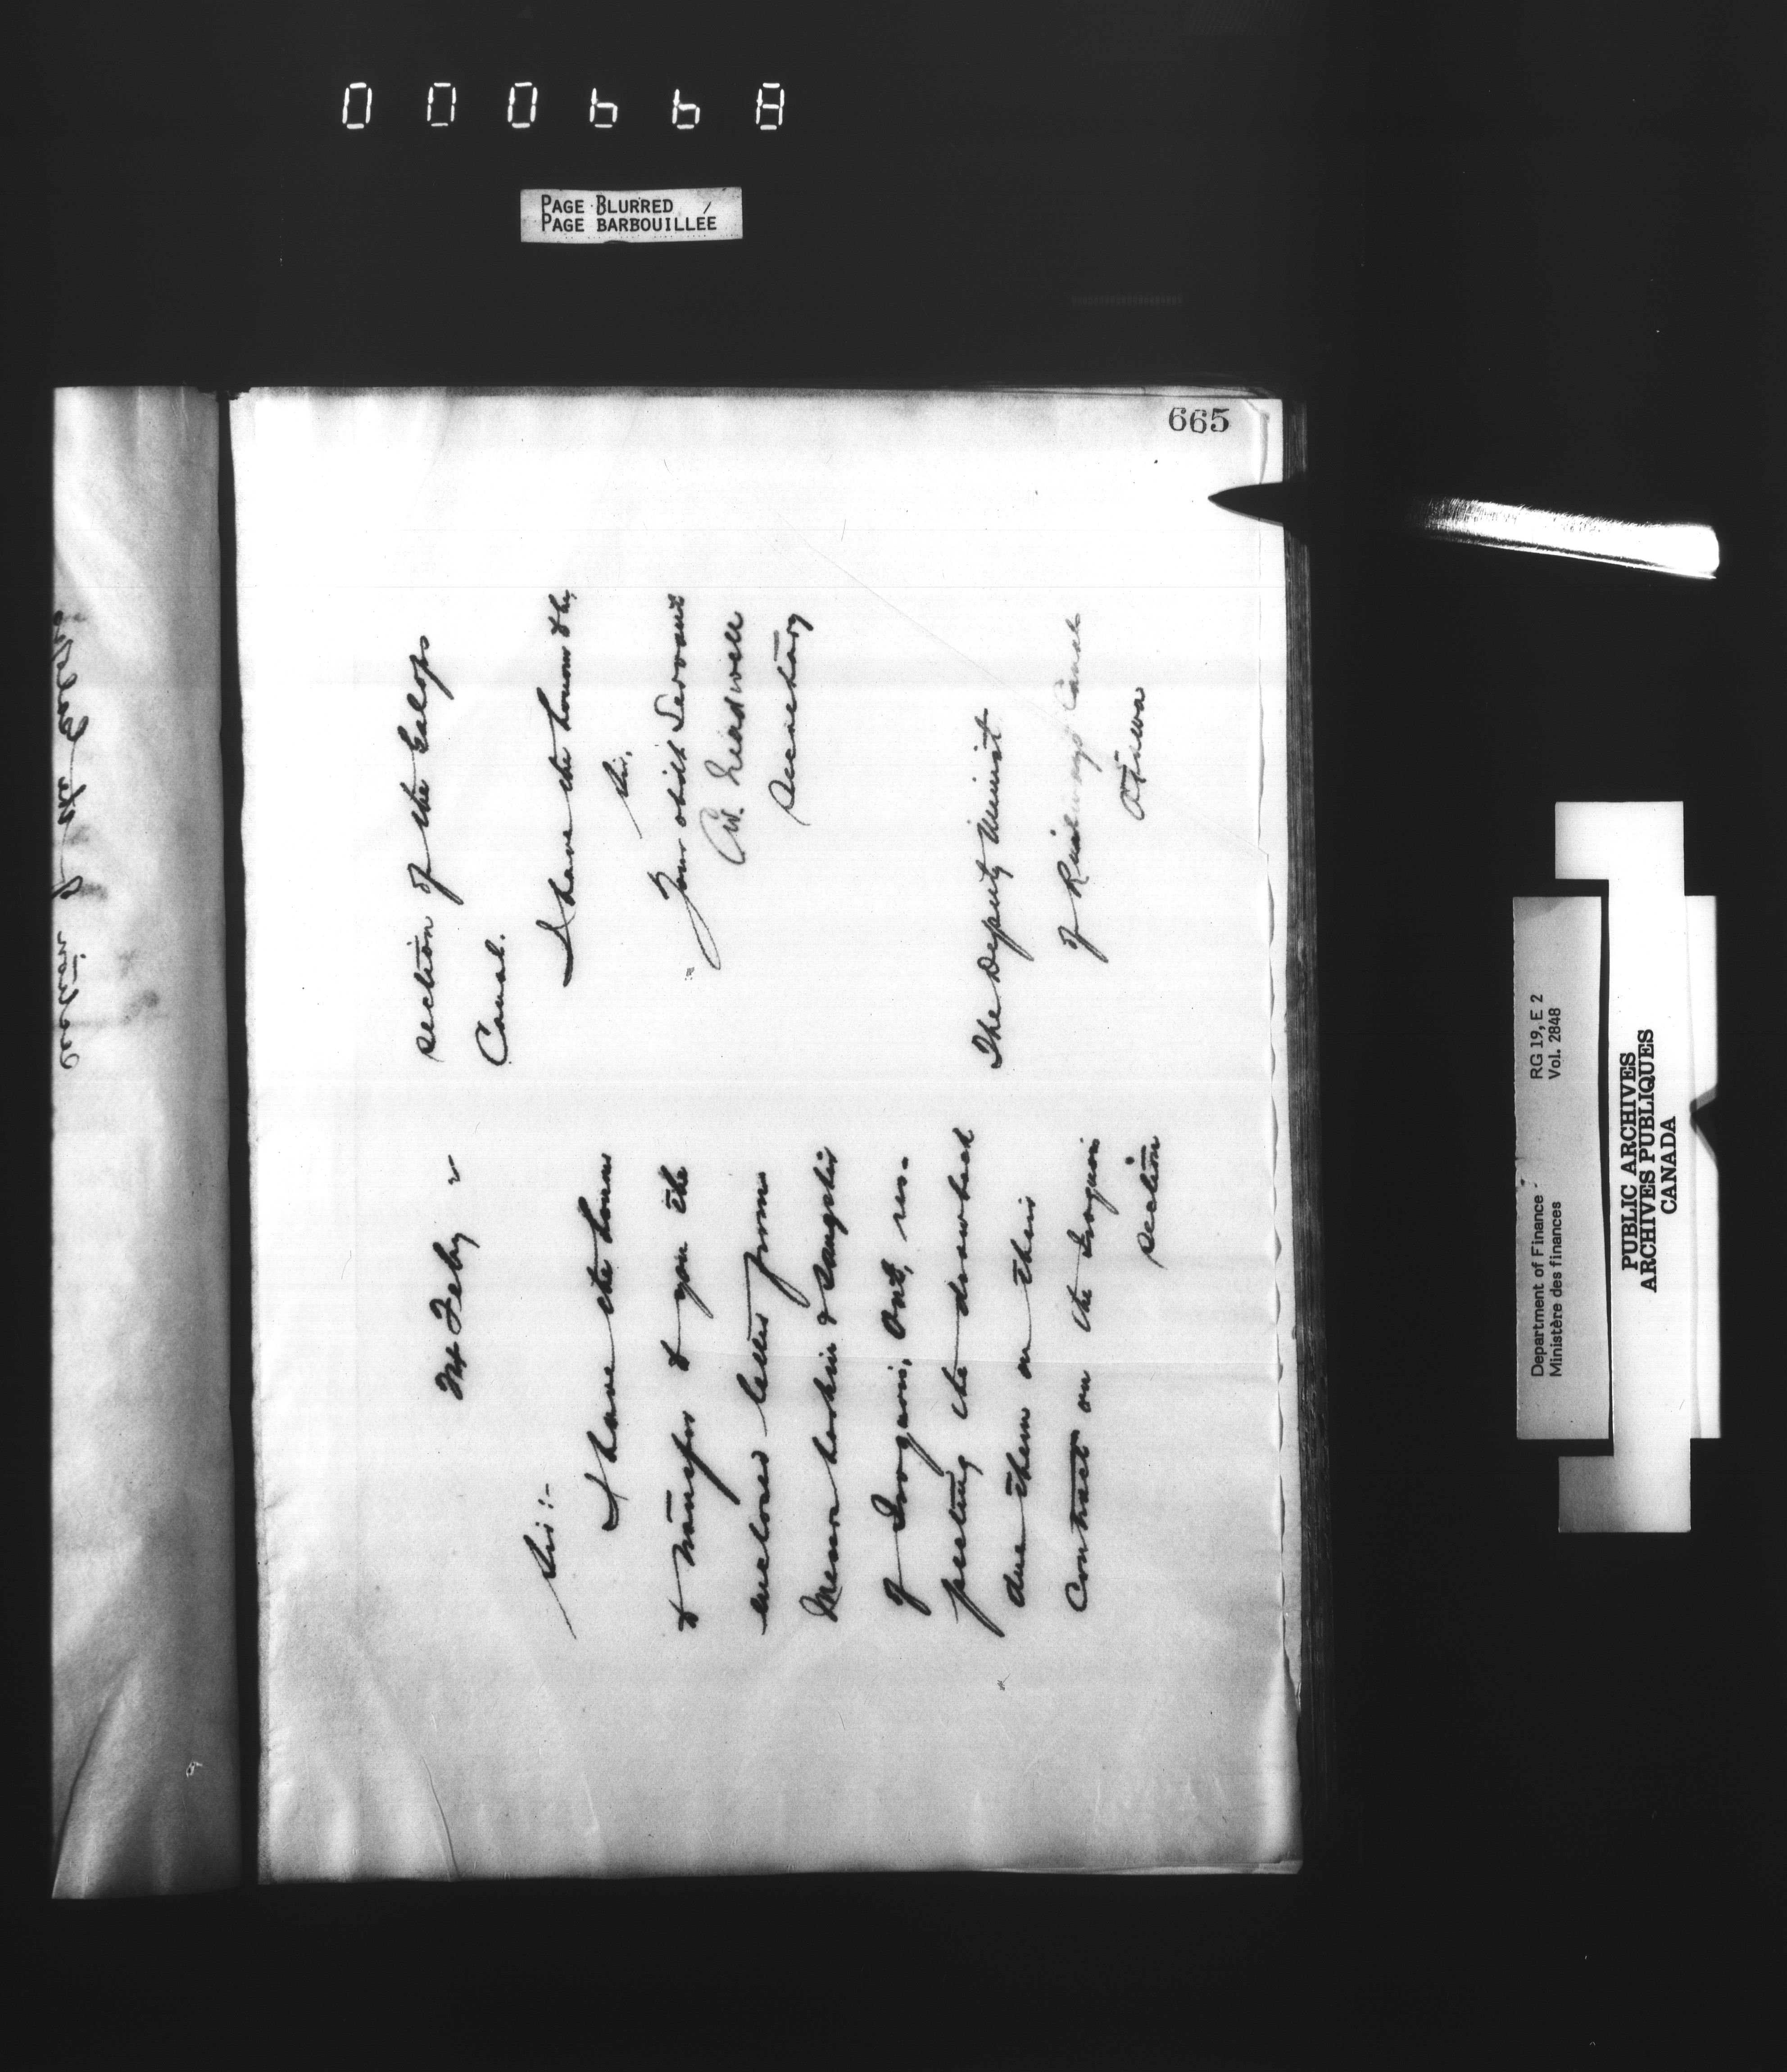 PAGE BLURRED /
PAGE BARBOUILLÉE
665
Feby
Sir :-
I have the honour
to transfer to you the
enclosed letter from
Messrs Larkin & Sangster
of Iroquois, Ont, res-
pecting the drawback
due them on their
Contract on the Iroquois
section
section of the Galops
Canal.
I have the honour to be,
Sir,
Your obdt Servant
Secretary
The Deputy Minist
of Railways & Canals
Ottawa
section of the Galops
Department of Finance
Ministère des finances
RG 19, E 2
Vol. 2848
PUBLIC ARCHIVES
ARCHIVES PUBLIQUES
CANADA